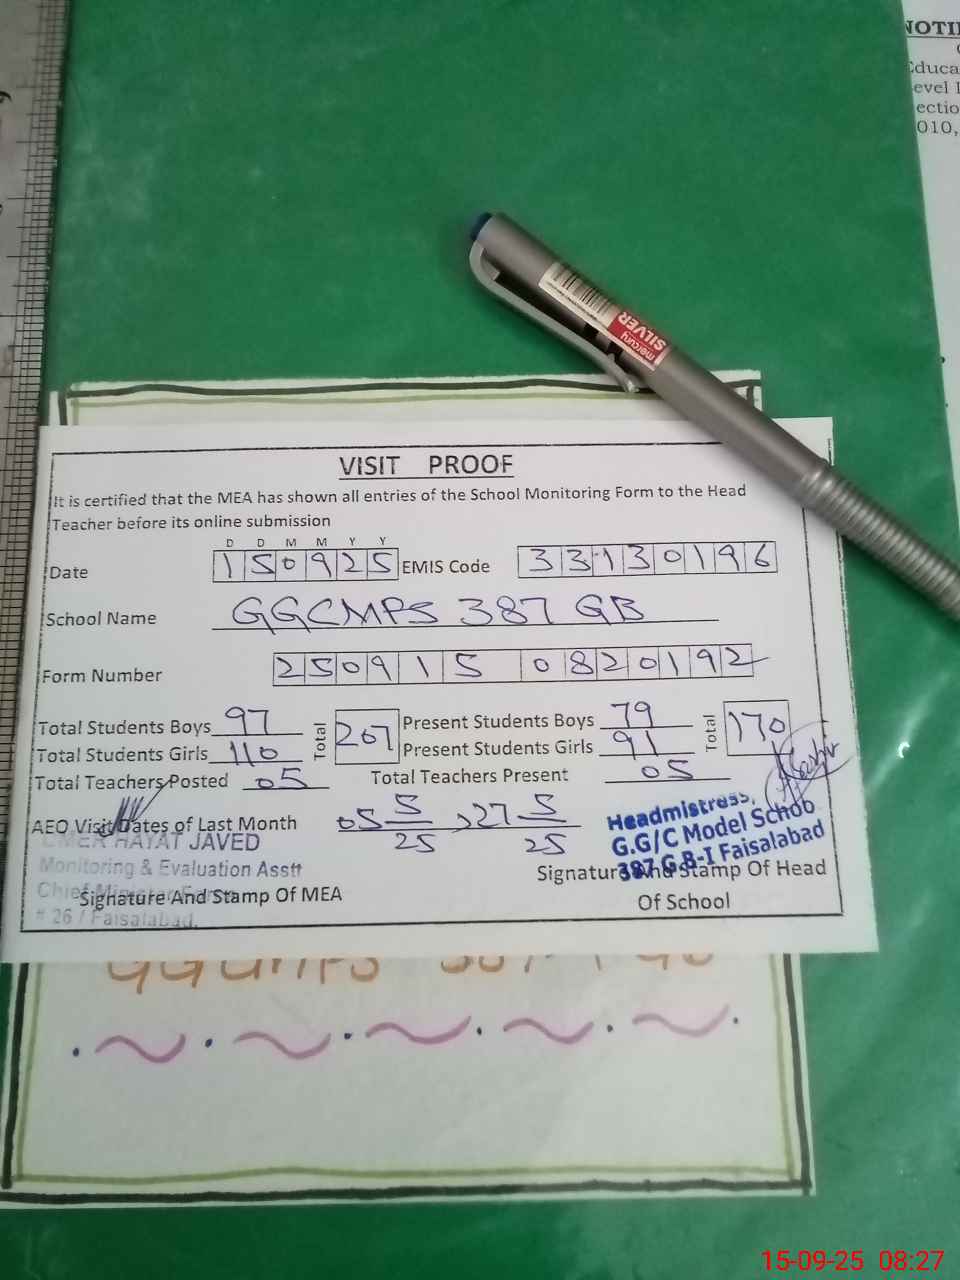 NOTI
Educa
evel I
ectio
010,
mercury
SILVER
VISIT PROOF
It is certified that the MEA has shown all entries of the School Monitoring Form to the Head
Teacher before its online submission
D D M M Y Y
Date 150925 EMIS Code 33130196
School Name GGCMPS 387 GB
Form Number 250915 0820192
Total Students Boys 97 Total 207 Present Students Boys 79 Total 170
Total Students Girls 110 Present Students Girls 91
Total Teachers Posted 05 Total Teachers Present 05
AEO Visit Dates of Last Month 05 5/25 , 27 5/25
UMER HAYAT JAVED
Monitoring & Evaluation Asstt
Chief Minister
# 26 / Faisalabad.
Signature And Stamp Of MEA
Headmistress,
G.G/C Model School
387 G.B-I Faisalabad
Signature And Stamp Of Head
Of School
GGCMPS 387
15-09-25 08:27